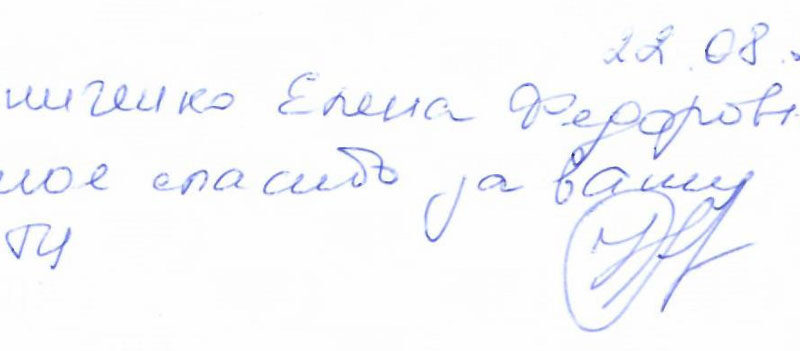 22.08.
ниченко Елена Федоровн
мое спасибо за вашу
ту